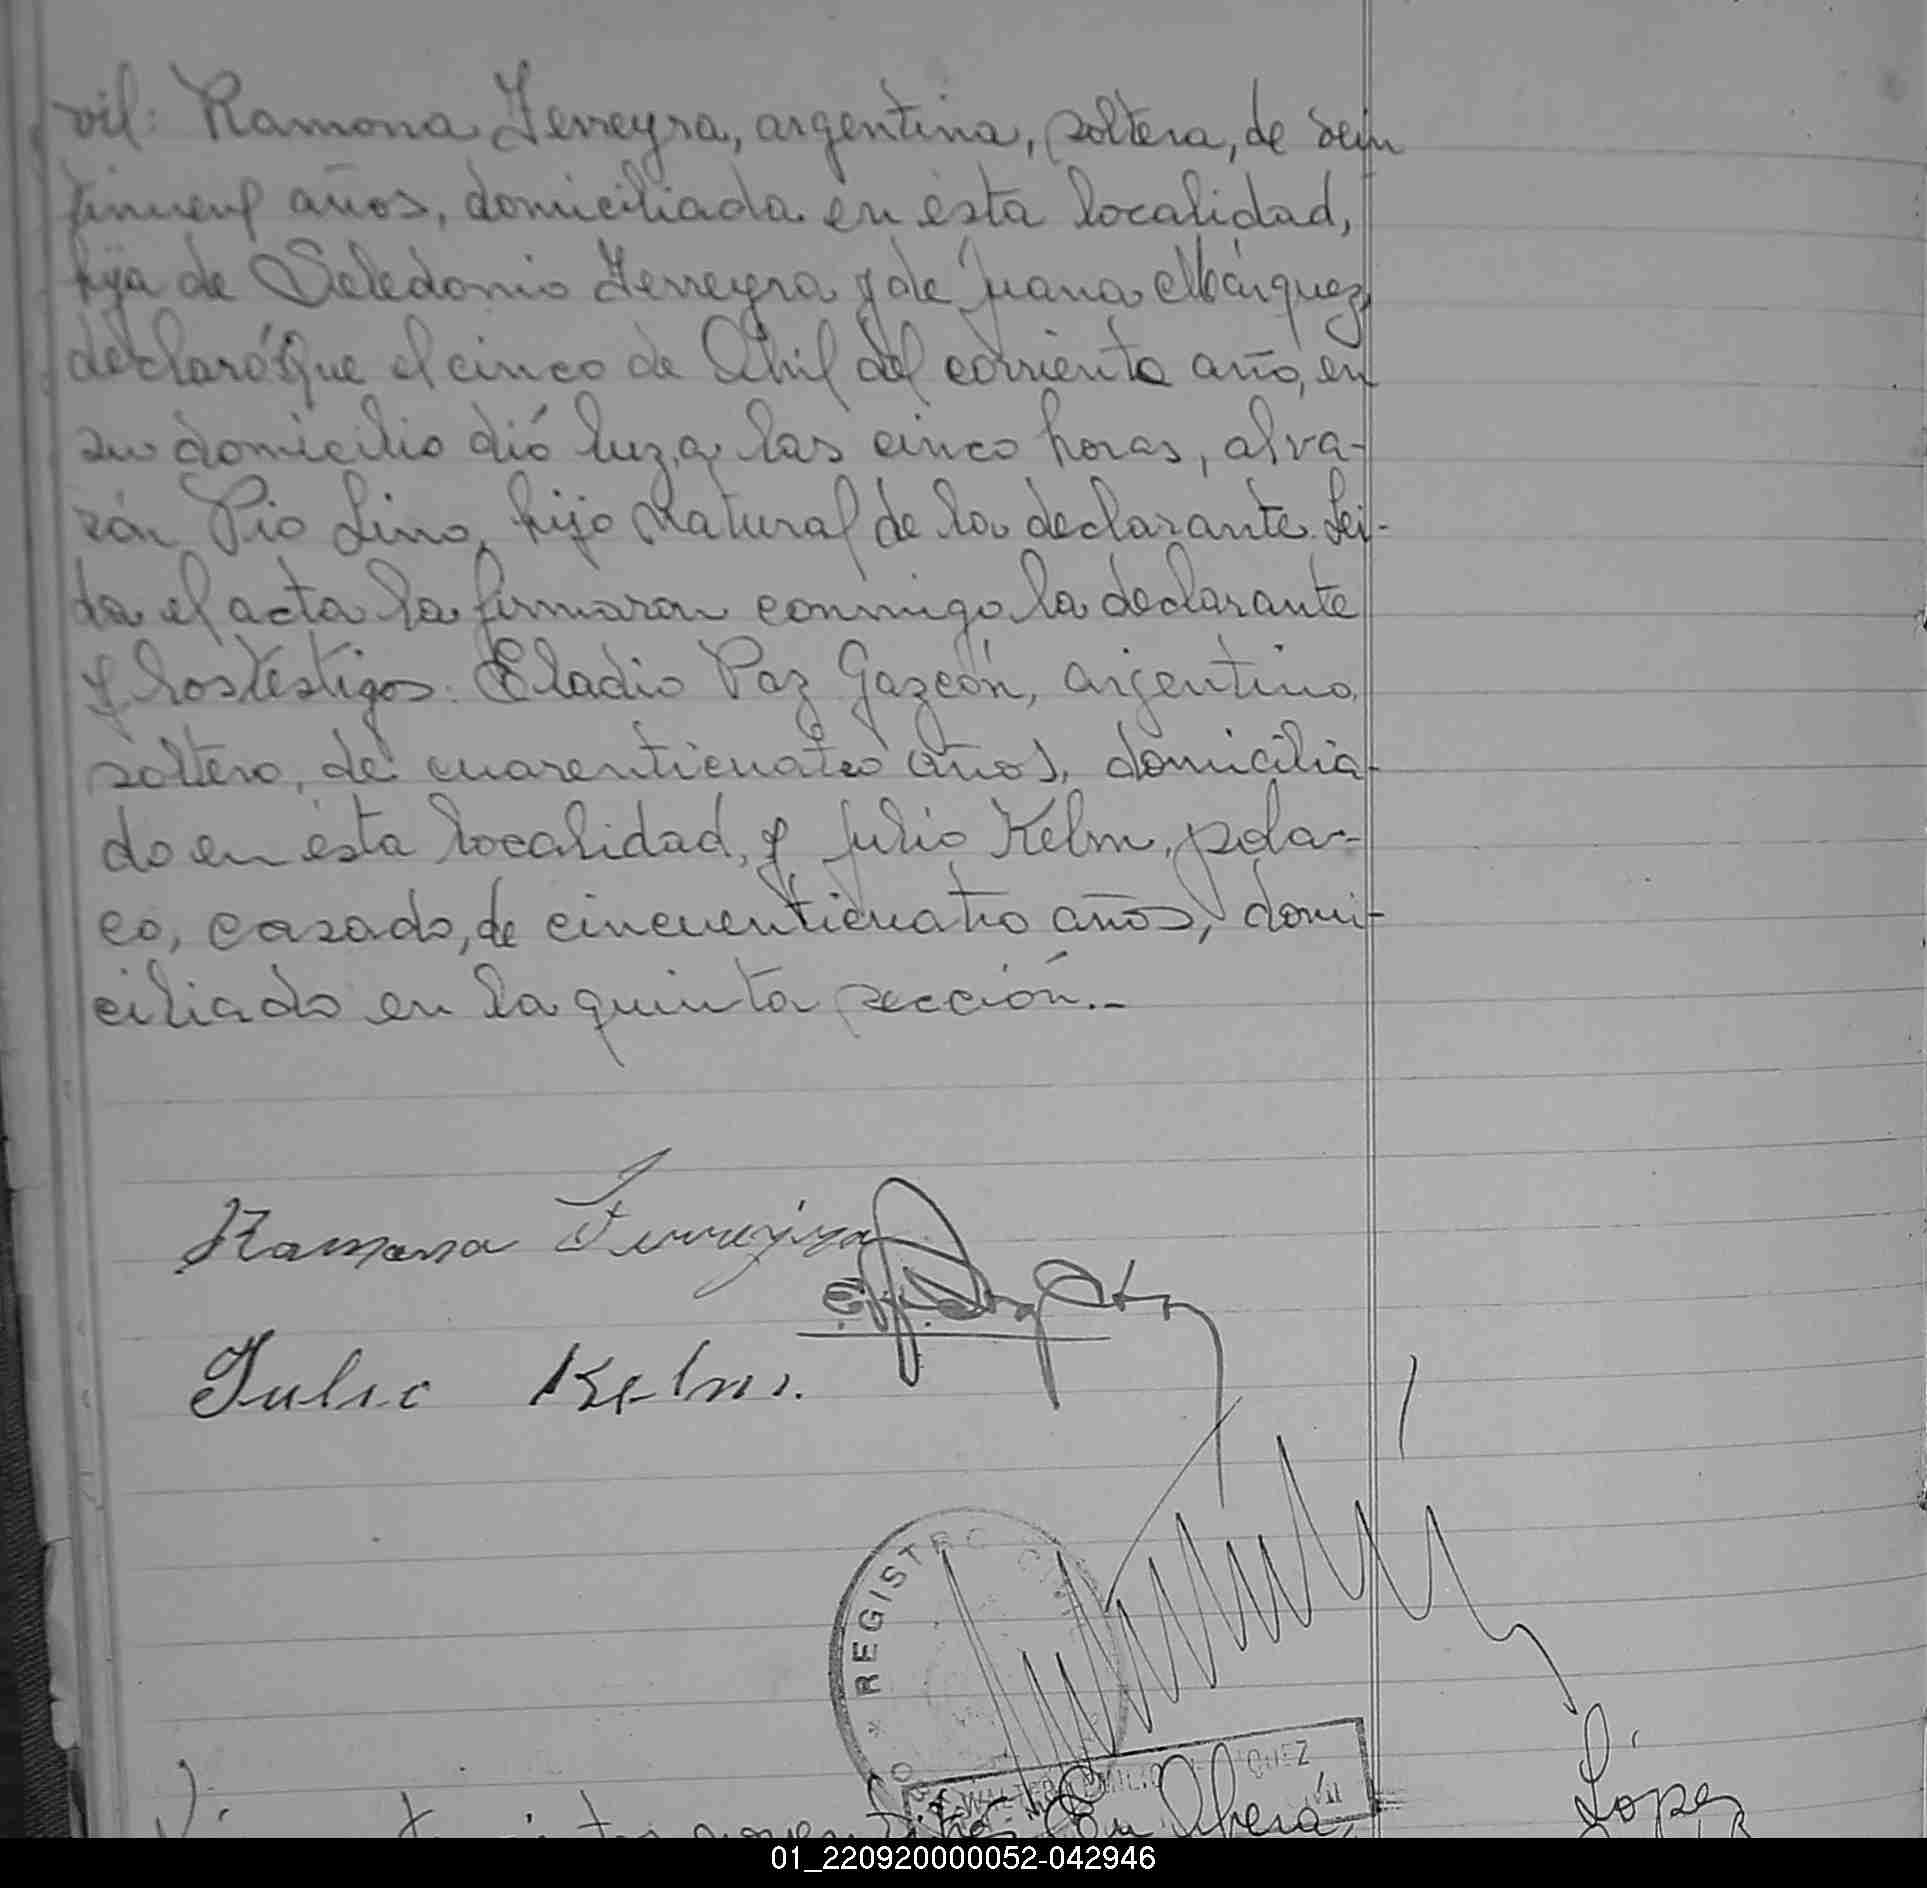 vil: Ramona Ferreyra, argentina, soltera, de vein
tinueve años, domiciliada en ésta localidad,
hija de Seledonio Ferreyra y de Juana Márquez,
declaró: Que el cinco de Abril del corriente año, en
su domicilio dió luz, a las cinco horas, al va-
rón Pio Lino, hijo natural de la declarante. Lei-
da el acta la firmaron conmigo la declarante
y los testigos: Eladio Paz Gazcón, argentino,
soltero, de cuarenticuatro años, domicilia-
do en ésta localidad, y Julio Kelm, pola-
co, casado, de cincuenticuatro años, domi-
ciliado en la quinta sección.-
Ramona Ferreyra
Julio Kelm.
REGISTRO CIVIL
WALTER EMILIO
QUEZ
En Oberá,
Lopez
01_220920000052-042946